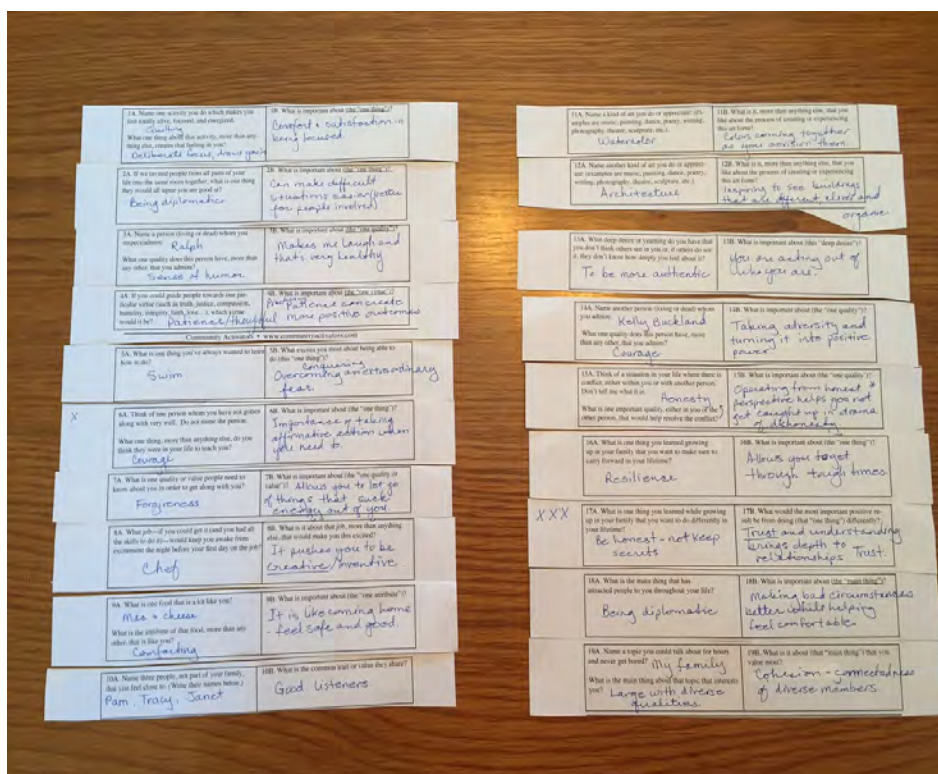 1A. Name one activity you do which makes you
feel totally alive, focused, and energized.
Quilting
What one thing about this activity, more than any-
thing else, creates that feeling in you?
Deliberate focus, draws you in
1B. What is important about (the "one thing")?
Comfort + satisfaction in
being focused.
2A. If we invited people from all parts of your
life into the same room together, what is one thing
they would all agree you are good at?
Being diplomatic
2B. What is important about (the "one thing")?
Can make difficult
situations easier/better
for people involved
3A. Name a person (living or dead) whom you
respect/admire.
Ralph
What one quality does this person have, more than
any other, that you admire?
Sense of humor
3B. What is important about (the "one quality")?
Makes me laugh and
that's very healthy
4A. If you could guide people towards one par-
ticular virtue (such as truth, justice, compassion,
humility, integrity, faith, love...), which virtue
would it be? Patience/thoughtful
4B. What is important about (the "one virtue")?
Patience can create
more positive outcomes
Community Activators • www.communityactivators.com
5A. What is one thing you've always wanted to learn
how to do?
Swim
5B. What excites you most about being able to
do (this "one thing")?
conquering
Overcoming an extraordinary
fear.
X
6A. Think of one person whom you have not gotten
along with very well. Do not name the person.
What one thing, more than anything else, do you
think they were in your life to teach you?
Courage
6B. What is important about (the "one thing")?
Importance of taking
affirmative action when
you need to.
7A. What is one quality or value people need to
know about you in order to get along with you?
Forgiveness
7B. What is important about (the "one quality or
value")? Allows you to let go
of things that suck
energy out of you.
8A. What job—if you could get it (and you had all
the skills to do it)—would keep you awake from
excitement the night before your first day on the job?
Chef
8B. What is it about that job, more than anything
else, that would make you this excited?
It pushes you to be
creative/inventive.
9A. What is one food that is a lot like you?
Mac + cheese
What is the attribute of that food, more than any
other, that is like you?
Comforting
9B. What is important about (the "one attribute")?
It is like coming home
- feel safe and good.
10A. Name three people, not part of your family,
that you feel close to. (Write their names below.)
Pam, Tracy, Janet
10B. What is the common trait or value they share?
Good listeners.
11A. Name a kind of art you do or appreciate (ex-
amples are music, painting, dance, poetry, writing,
photography, theatre, sculpture, etc.).
Watercolor
11B. What is it, more than anything else, that you
like about the process of creating or experiencing
this art form?
Colors coming together
as you envision them
12A. Name another kind of art you do or appreci-
ate (examples are music, painting, dance, poetry,
writing, photography, theatre, sculpture, etc.).
Architecture
12B. What is it, more than anything else, that you
like about the process of creating or experiencing
this art form?
Inspiring to see buildings
that are different, clever and
organic
13A. What deep desire or yearning do you have that
you don't think others see in you or, if others do see
it, they don't know how deeply you feel about it?
To be more authentic
13B. What is important about (this "deep desire")?
You are acting out of
who you are.
14A. Name another person (living or dead) whom
you admire.
Kelly Buckland
What one quality does this person have, more
than any other, that you admire?
Courage
14B. What is important about (the "one quality")?
Taking adversity and
turning it into positive
power
15A. Think of a situation in your life where there is
conflict, either within you or with another person.
Don't tell me what it is.
Honesty
What is one important quality, either in you or the
other person, that would help resolve the conflict?
15B. What is important about (the "one quality")?
Operating from honest
perspective helps you not
get caught up in drama
of dishonesty
16A. What is one thing you learned growing
up in your family that you want to make sure to
carry forward in your lifetime?
Resilience
16B. What is important about (the "one thing")?
Allows you to get
through tough times
XXX
17A. What is one thing you learned while growing
up in your family that you want to do differently in
your lifetime?
Be honest - not keep
secrets
17B. What would the most important positive re-
sult be from doing (that "one thing") differently?
Trust and understanding
brings depth to
relationships Trust.
18A. What is the main thing that has
attracted people to you throughout your life?
Being diplomatic
18B. What is important about (the "main thing")?
Making bad circumstances
better while helping
feel comfortable
19A. Name a topic you could talk about for hours
and never get bored? My family
What is the main thing about that topic that interests
you? Large with diverse
qualities.
19B. What is it about (that "main thing") that you
value most?
Cohesion - connectedness
of diverse members